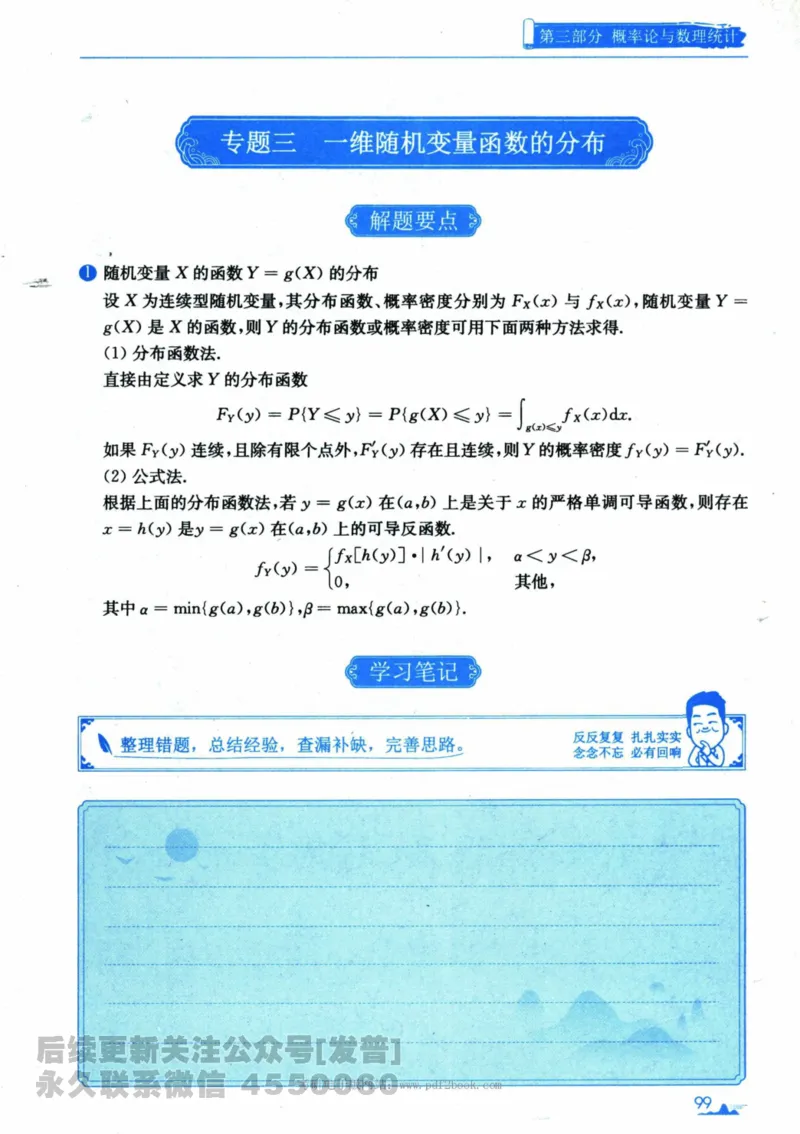 第三部分 概率论与数理统计
专题三 一维随机变量函数的分布
解题要点
1 随机变量 X 的函数 Y = g(X) 的分布
设 X 为连续型随机变量,其分布函数、概率密度分别为 F_X(x) 与 f_X(x),随机变量 Y =
g(X) 是 X 的函数,则 Y 的分布函数或概率密度可用下面两种方法求得.
(1) 分布函数法.
直接由定义求 Y 的分布函数
F_Y(y) = P{Y ≤ y} = P{g(X) ≤ y} = ∫_{g(x)≤y} f_X(x)dx.
如果 F_Y(y) 连续,且除有限个点外,F′_Y(y) 存在且连续,则 Y 的概率密度 f_Y(y) = F′_Y(y).
(2) 公式法.
根据上面的分布函数法,若 y = g(x) 在(a,b) 上是关于 x 的严格单调可导函数,则存在
x = h(y) 是y = g(x) 在(a,b) 上的可导反函数.
f_Y(y) = { f_X[h(y)]·| h′(y) |, α < y < β,
0, 其他,
其中 α = min{g(a),g(b)},β = max{g(a),g(b)}.
学习笔记
整理错题，总结经验，查漏补缺，完善思路。
反反复复 扎扎实实
念念不忘 必有回响
后续更新关注公众号[发普]
永久联系微信 4550060
www.pdf2book.com
99